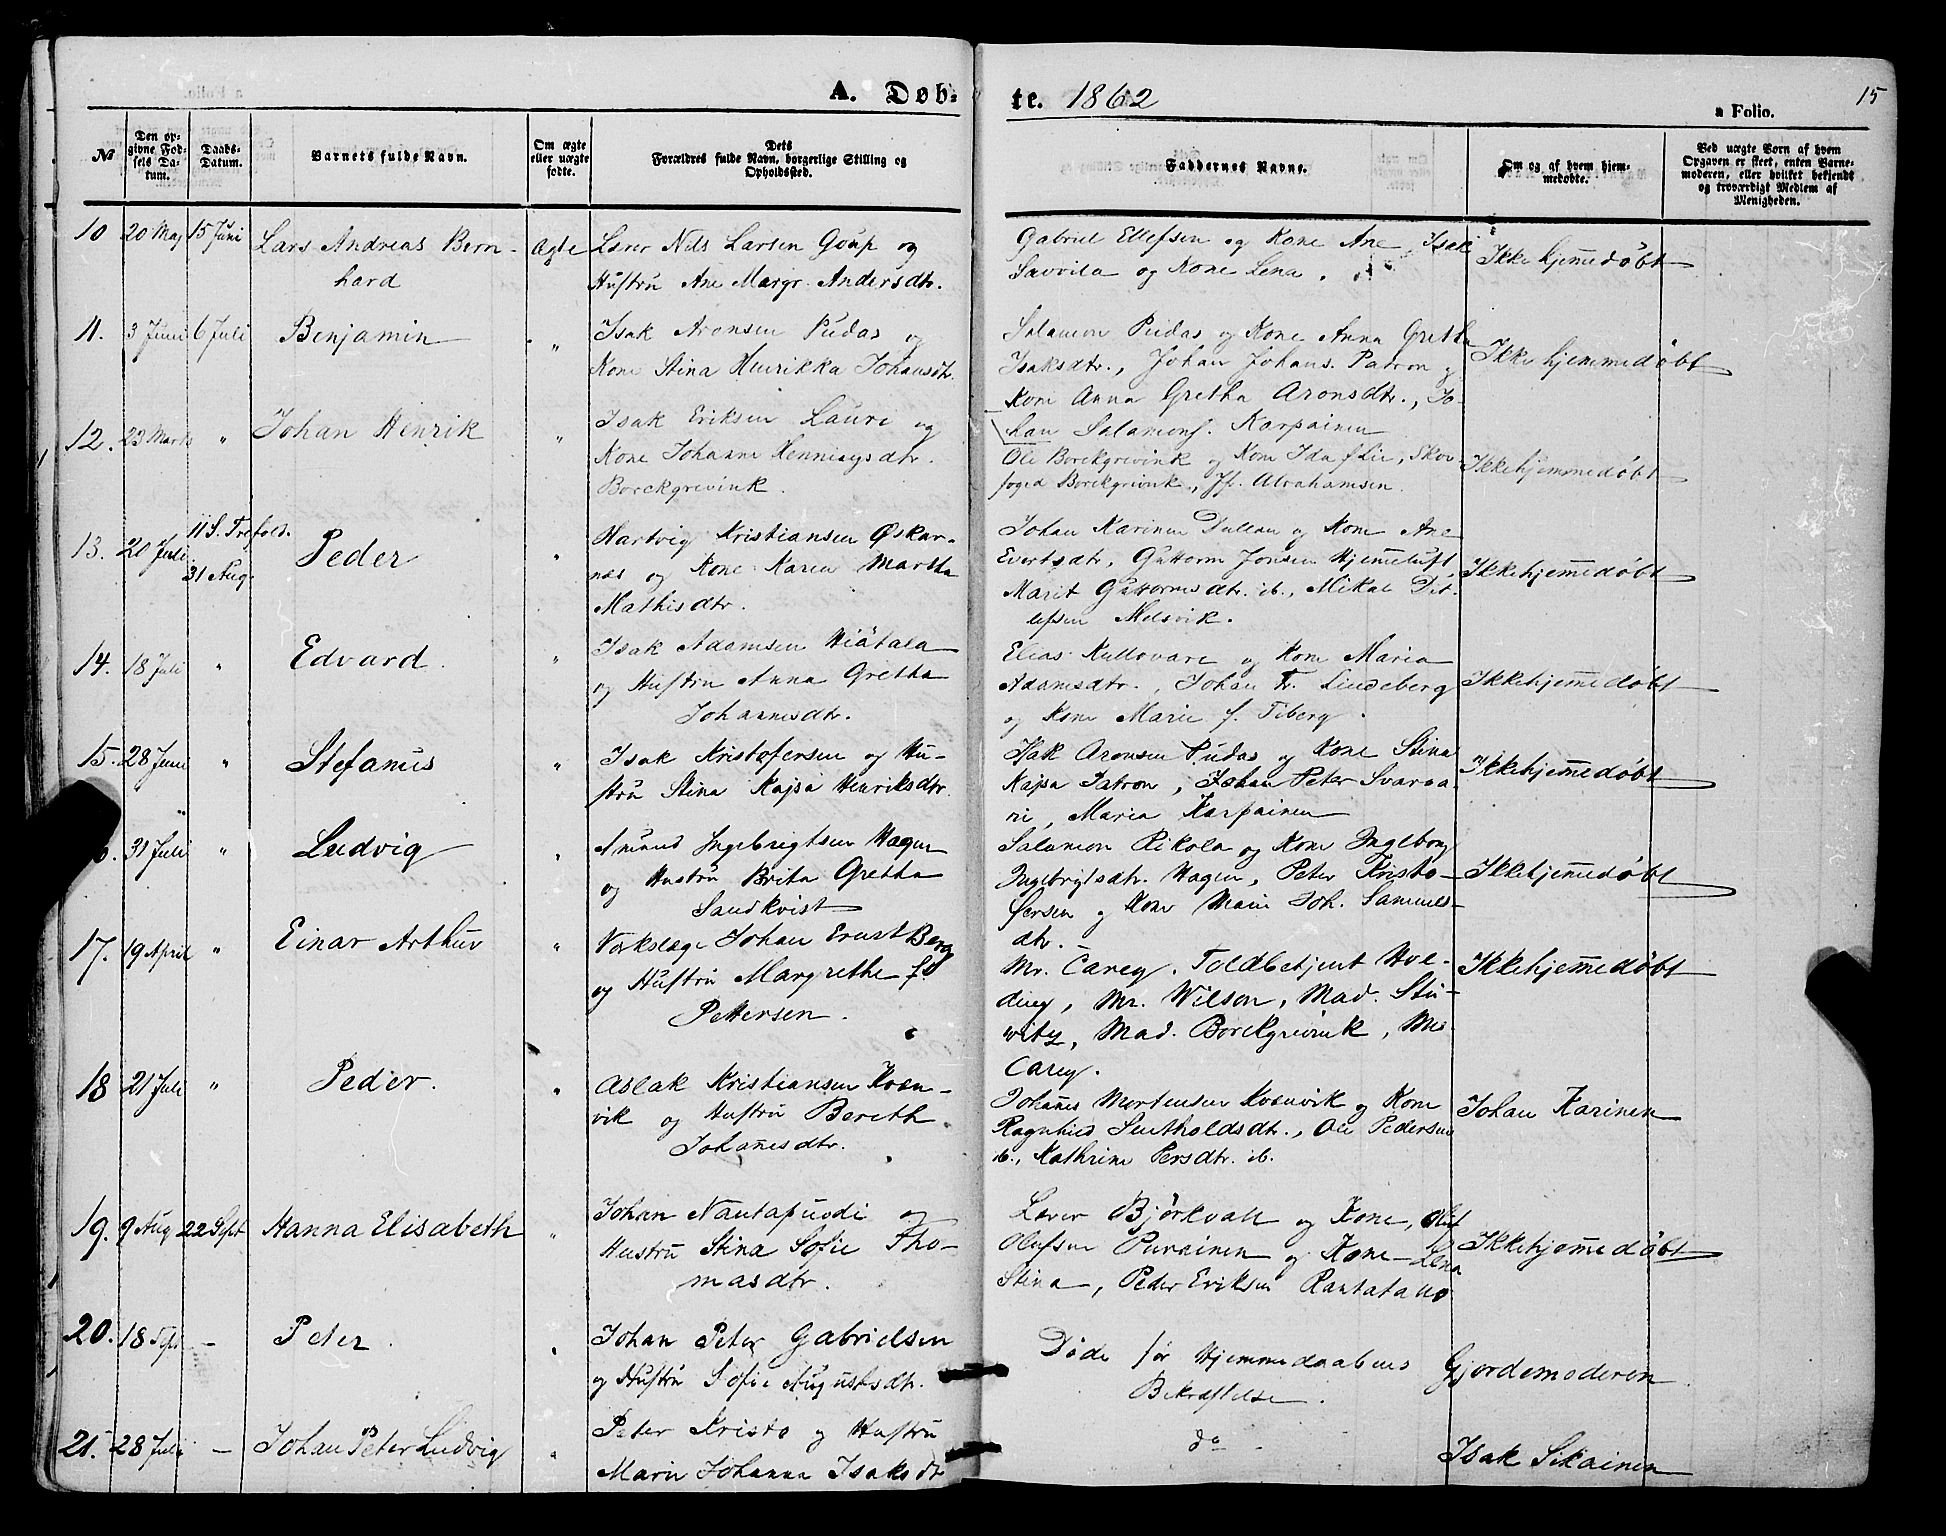 A. Døb-
te. 1862
15
a Folio.
№
Den op-
givne Fød-
sels Da-
tum.
Daabs-
Datum.
Barnets fulde Navn.
Om ægte
eller uægte
fødte.
Dets
Forældres fulde Navn, borgerlige Stilling og
Opholdssted.
Faddernes Navne.
Om og af hvem hjem-
medøbte.
Ved uægte Børn af hvem
Opgaven er skeet, enten Barne-
moderen, eller hvilket bekjendt
og troværdigt Medlem af
Menigheden.
10 20 Maj 15 Juni Lars Andreas Bern-
hard
Ægte
Lærer Nils Larsen Goup og
Hustru Ane Margr. Andersdtr.
Gabriel Ellefsen og Kone Ane, Isak
Savvila og Kone Lena.
Ikke hjemmedøbt
11. 3 Juni 6 Juli Benjamin "
Isak Aronsen Pudas og
Kone Stina Henrikka Johansdtr.
Salamon Pudas og Kone Anna Gretha
Isaksdtr., Johan Johans. Patron og
Kone Anna Gretha Aronsdtr., Jo-
han Salamons. Karpainen
Ikke hjemmedøbt
12. 23 Marts " Johan Henrik "
Isak Eriksen Lauri og
Kone Johanne Henningsdtr.
Borckgrevink.
Ole Borckgrevink og Kone Ida f Lie, Skov-
foged Borckgrevink, Jfr. Abrahamsen.
Ikkehjemmedøbt
13. 20 Juli 11 S. Trefold.
31 Aug. Peder "
Hartvig Kristiansen Øskar-
nes og Kone Karen Martha
Mathisdtr.
Johan Karinen Dullau og Kone Ane
Evertsdtr, Guttorm Jonsen Hjemmeluft,
Marit Guttormsdtr. ib., Mikal Dit-
lefsen Melsvik.
Ikkehjemmedøbt
14. 18 Juli " Edvard. "
Isak Adamsen Hiätala
og Hustru Anna Gretha
Johannesdtr.
Elias Kullovara og Kone Maria
Adamsdtr., Johan Fr. Lindeberg
og Kone Marie f. Tiberg.
Ikkehjemmedøbt
15. 28 Juni " Stefanus "
Isak Kristofersen og Hu-
stru Stina Kajsa Henriksdtr.
Isak Aronsen Pudas og Kone Stina
Kajsa Patron, Johan Peter Svarva-
ri, Maria Karpainen
Ikkehjemmedøbt
6. 31 Juli " Ludvig "
Amund Ingebrigtsen Hagen
og Hustru Brita Gretha
Sandkvist
Salamon Rikola og Kone Ingeborg
Ingebrigtsdtr. Hagen, Peter Kristo-
fersen og Kone Marie Joh. Samuels-
dtr.
Ikkehjemmedøbt
17. 19 April " Einar Arthur "
Værkslæge Johan Ernst Berg
og Hustru Margrethe fd
Pettersen.
Mr. Carey. Toldbetjent Hol-
ding, Mr. Wilson, Mad. Stu-
witz, Mad. Borckgrevink, Ms
Carey.
Ikkehjemmedøbt
18 21 Juli " Peder. "
Aslak Kristiansen Kvæn-
vik og Hustru Bereth
Johannesdtr.
Johannes Mortensen Kvænvik og Kone
Ragnhild Sentholdsdtr., Ole Pedersen
ib., Kathrine Persdtr. ib.
Johan Karinen
19. 9 Aug 22 Sept Hanna Elisabeth "
Johan Nautapuodi og
Hustru Stina Sofie Tho-
masdtr.
Lærer Björkvall og Kone, Olof
Olufsen Purainen og Kone Lena
Stina, Peder Eriksen Rantatallo
Ikkehjemmedøbt
20. 18 Sept — Peter. "
Johan Peter Gabrielsen
og Hustru Sofie Augustsdtr.
Døde før Hjemmedaabens
Bekræftelse.
Gjordemoderen
21. 28 Juli — Johan Peter Ludvig "
Peter Kristo og Hustru
Marie Johanna Isaksdtr
do
Isak Sikainen